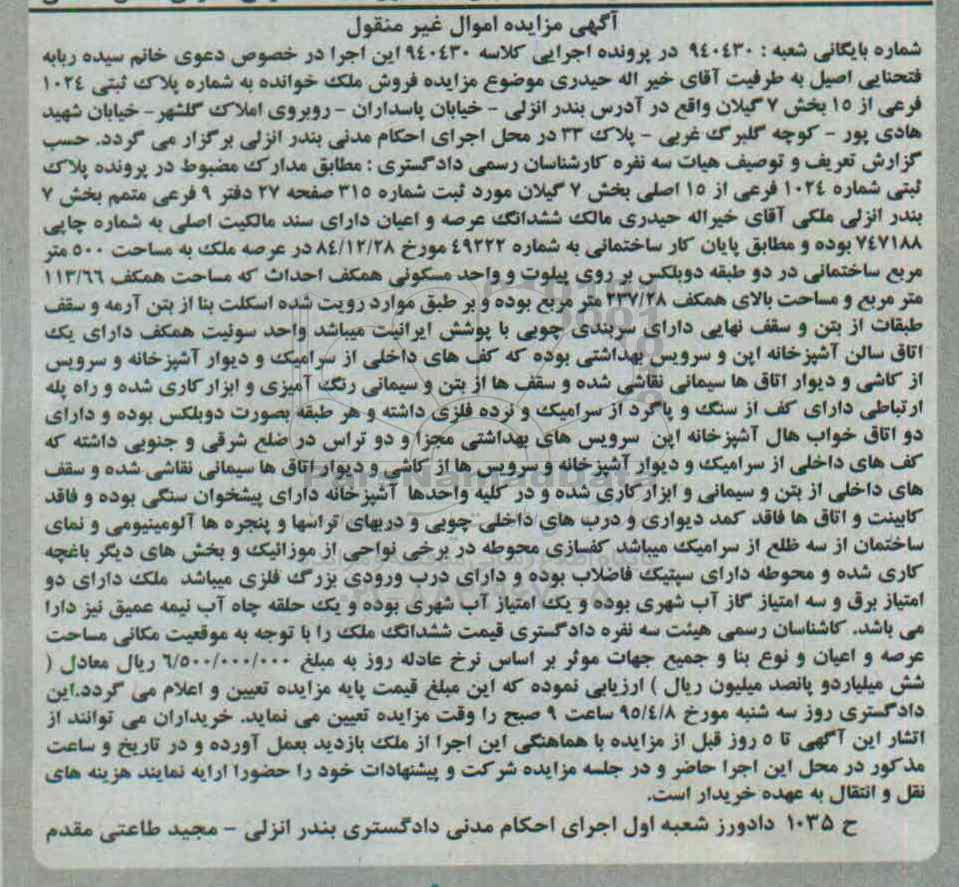 آگهی مزایده اموال غیر منقول
شماره بایگانی شعبه : ۹۴۰۴۳۰ در پرونده اجرایی کلاسه ۹۴۰۴۳۰ این اجرا در خصوص دعوی خانم سیده ربابه
فتحنایی اصیل به طرفیت آقای خیر اله حیدری موضوع مزایده فروش ملک خوانده به شماره پلاک ثبتی ۱۰۲۴
فرعی از ۱۵ بخش ۷ گیلان واقع در آدرس بندر انزلی - خیابان پاسداران - روبروی املاک گلشهر- خیابان شهید
هادی پور - کوچه گلبرگ غربی - پلاک ۳۳ در محل اجرای احکام مدنی بندر انزلی برگزار می گردد. حسب
گزارش تعریف و توصیف هیات سه نفره کارشناسان رسمی دادگستری : مطابق مدارک مضبوط در پرونده پلاک
ثبتی شماره ۱۰۲۴ فرعی از ۱۵ اصلی بخش ۷ گیلان مورد ثبت شماره ۳۱۵ صفحه ۲۷ دفتر ۹ فرعی متمم بخش ۷
بندر انزلی ملکی آقای خیراله حیدری مالک ششدانگ عرصه و اعیان دارای سند مالکیت اصلی به شماره چاپی
۷۴۷۱۸۸ بوده و مطابق پایان کار ساختمانی به شماره ۴۹۲۲۲ مورخ ۸۴/۱۲/۲۸ در عرصه ملک به مساحت ۵۰۰ متر
مربع ساختمانی در دو طبقه دوبلکس بر روی پیلوت و واحد مسکونی همکف احداث که مساحت همکف ۱۱۳/۶۶
متر مربع و مساحت بالای همکف ۲۳۷/۲۸ متر مربع بوده و بر طبق موارد رویت شده اسکلت بنا از بتن آرمه و سقف
طبقات از بتن و سقف نهایی دارای سربندی چوبی با پوشش ایرانیت میباشد واحد سوئیت همکف دارای یک
اتاق سالن آشپزخانه اپن و سرویس بهداشتی بوده که کف های داخلی از سرامیک و دیوار آشپزخانه و سرویس
از کاشی و دیوار اتاق ها سیمانی نقاشی شده و سقف ها از بتن و سیمانی رنگ آمیزی و ابزارکاری شده و راه پله
ارتباطی دارای کف از سنگ و پاگرد از سرامیک و نرده فلزی داشته و هر طبقه بصورت دوبلکس بوده و دارای
دو اتاق خواب هال آشپزخانه اپن سرویس های بهداشتی مجزا و دو تراس در ضلع شرقی و جنوبی داشته که
کف های داخلی از سرامیک و دیوار آشپزخانه و سرویس ها از کاشی و دیوار اتاق ها سیمانی نقاشی شده و سقف
های داخلی از بتن و سیمانی و ابزارکاری شده و در کلیه واحدها آشپزخانه دارای پیشخوان سنگی بوده و فاقد
کابینت و اتاق ها فاقد کمد دیواری و درب های داخلی چوبی و دربهای تراسها و پنجره ها آلومینیومی و نمای
ساختمان از سه ظلع از سرامیک میباشد کفسازی محوطه در برخی نواحی از موزائیک و بخش های دیگر باغچه
کاری شده و محوطه دارای سپتیک فاضلاب بوده و دارای درب ورودی بزرگ فلزی میباشد ملک دارای دو
امتیاز برق و سه امتیاز گاز آب شهری بوده و یک امتیاز آب شهری بوده و یک حلقه چاه آب نیمه عمیق نیز دارا
می باشد. کاشناسان رسمی هیئت سه نفره دادگستری قیمت ششدانگ ملک را با توجه به موقعیت مکانی مساحت
عرصه و اعیان و نوع بنا و جمیع جهات موثر بر اساس نرخ عادله روز به مبلغ ۶/۵۰۰/۰۰۰/۰۰۰ ریال معادل (
شش میلیاردو پانصد میلیون ریال ) ارزیابی نموده که این مبلغ قیمت پایه مزایده تعیین و اعلام می گردد.این
دادگستری روز سه شنبه مورخ ۹۵/۴/۸ ساعت ۹ صبح را وقت مزایده تعیین می نماید. خریداران می توانند از
اتشار این آگهی تا ۵ روز قبل از مزایده با هماهنگی این اجرا از ملک بازدید بعمل آورده و در تاریخ و ساعت
مذکور در محل این اجرا حاضر و در جلسه مزایده شرکت و پیشنهادات خود را حضورا ارایه نمایند هزینه های
نقل و انتقال به عهده خریدار است.
ح ۱۰۳۵ دادورز شعبه اول اجرای احکام مدنی دادگستری بندر انزلی - مجید طاعتی مقدم